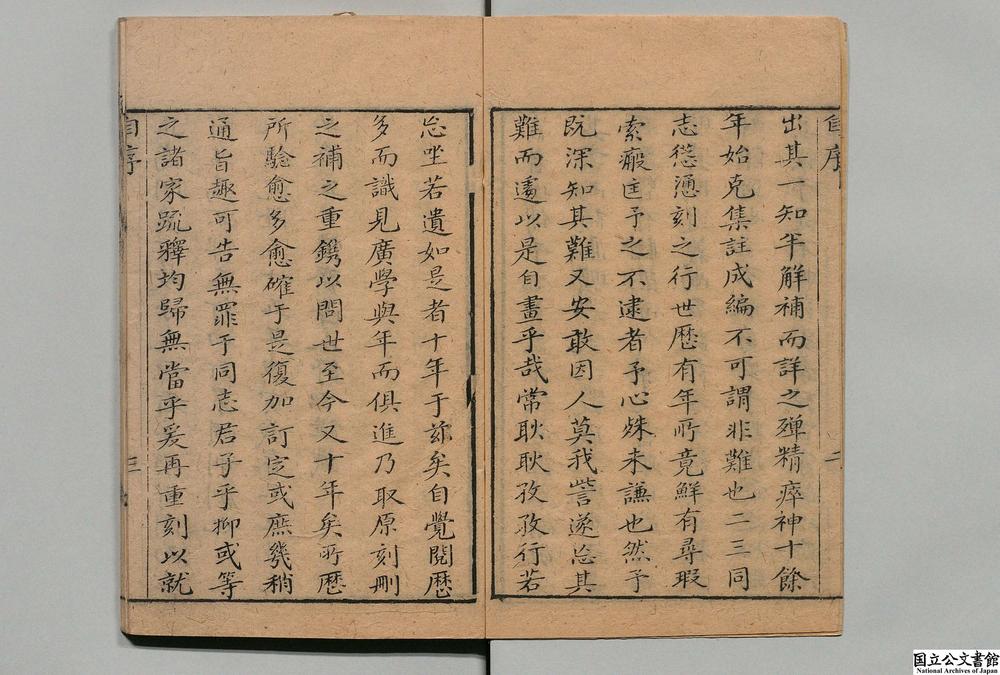 自序
二
出其一知半解補而詳之殫精瘁神十餘
年始克集註成編不可謂非難也二三同
志慫慂刻之行世歷有年所竟鮮有尋瑕
索瘢匡予之不逮者予心殊未謙也然予
既深知其難又安敢因人莫我訾遂忘其
難而遽以是自畫乎哉常耿耿孜孜行若
忘坐若遺如是者十年于茲矣自覺閱歷
多而識見廣學與年而俱進乃取原刻刪
之補之重鐫以問世至今又十年矣所歷
所驗愈多愈確于是復加訂定或庶幾稍
通旨趣可告無罪于同志君子乎抑或等
之諸家疏釋均歸無當乎爰再重刻以就
自序
三
国立公文書館
National Archives of Japan